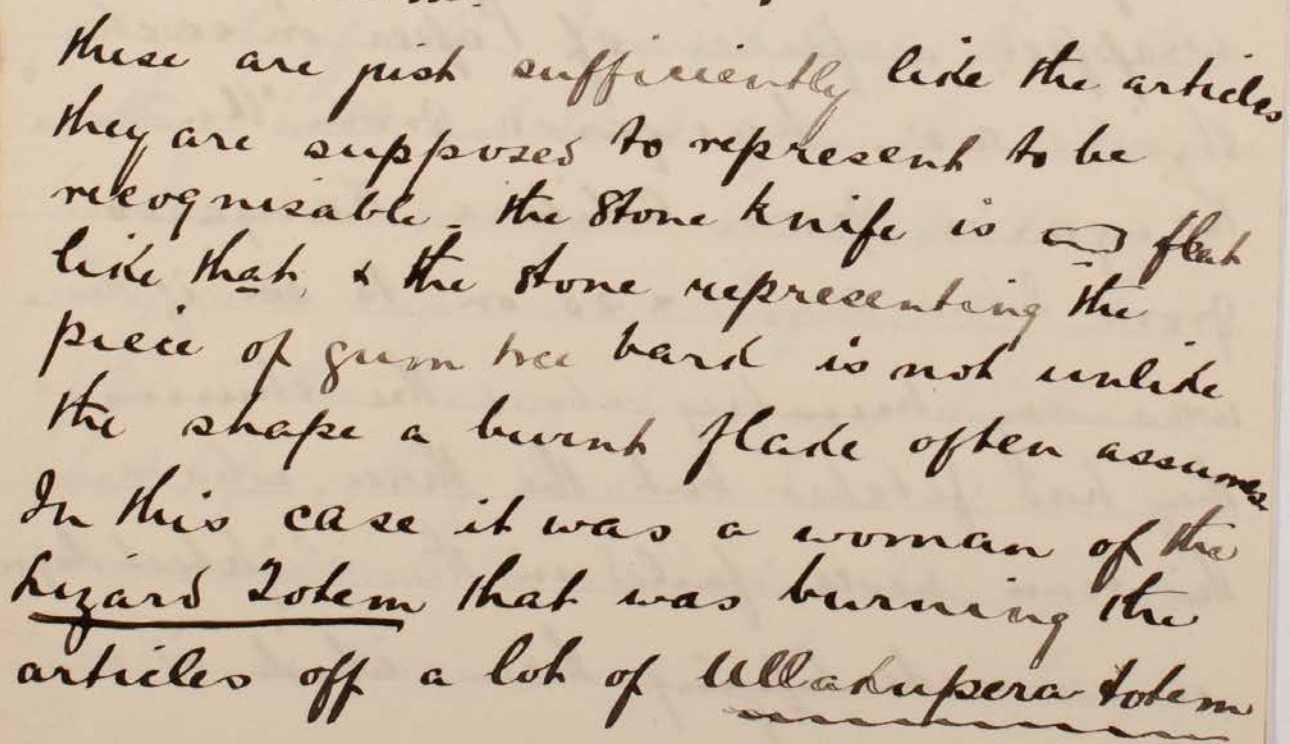 these are just sufficiently like the articles
they are supposed to represent to be
recognisable - the stone knife is flat
like that, & the stone representing the
piece of gum tree bark is not unlike
the shape a burnt flake often assumes
In this case it was a woman of the
Lizard Totem that was burning the
articles off a lot of Ullakupera totem